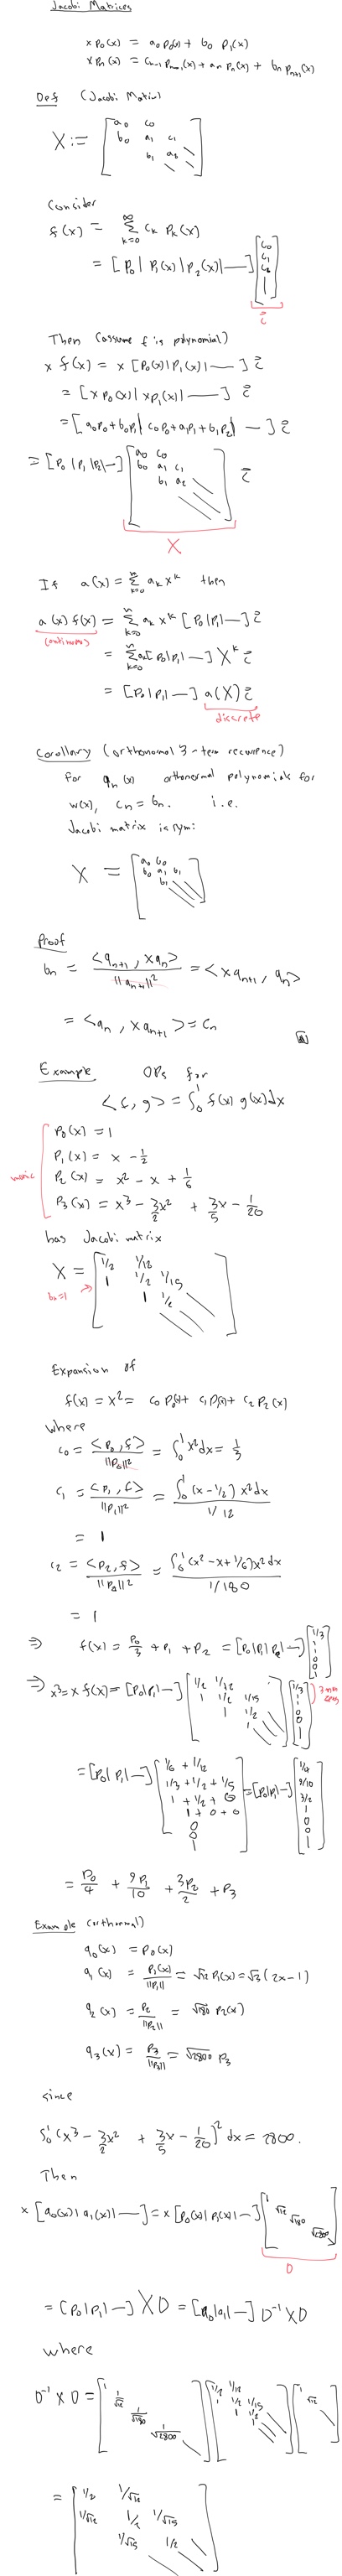 Jacobi Matrices
x p₀(x) = a₀ p₀(x) + b₀ p₁(x)
x pₙ(x) = cₙ₋₁ pₙ₋₁(x) + aₙ pₙ(x) + bₙ pₙ₊₁(x)
Def (Jacobi Matrix)
X := [ a₀ c₀
b₀ a₁ c₁
b₁ a₂ ]
Consider
f(x) = ∑_{k=0}^∞ cₖ pₖ(x)
= [p₀ | p₁(x) | p₂(x) | —] [c₀ c₁ c₂ |]
c
Then (assume f is polynomial)
x f(x) = x [p₀(x) | p₁(x) | —] c
= [x p₀(x) | x p₁(x) | —] c
= [a₀p₀ + b₀p₁ | c₀p₀ + a₁p₁ + b₁p₂ | —] c
= [p₀ | p₁ | p₂ | —] [ a₀ c₀
b₀ a₁ c₁
b₁ a₂ ] c
X
If a(x) = ∑_{k=0}^n aₖ xᵏ then
a(x) f(x) = ∑_{k=0}^n aₖ xᵏ [p₀ | p₁ | —] c
continuous
= ∑_{k=0}^n aₖ [p₀ | p₁ | —] Xᵏ c
= [p₀ | p₁ | —] a(X) c
discrete
Corollary (orthonormal 3-term recurrence)
For qₙ(x) orthonormal polynomials for
w(x), cₙ = bₙ. i.e.
Jacobi matrix is sym:
X = [ a₀ b₀
b₀ a₁ b₁
b₁ ]
Proof
bₙ = <qₙ₊₁, x qₙ> / ||qₙ₊₁||² = <x qₙ₊₁, qₙ>
= <qₙ, x qₙ₊₁> = cₙ
Example OPs for
<f, g> = ∫₀¹ f(x) g(x) dx
p₀(x) = 1
p₁(x) = x - 1/2
monic
p₂(x) = x² - x + 1/6
p₃(x) = x³ - 3/2 x² + 3/5 x - 1/20
has Jacobi matrix
X = [ 1/2 1/12
1 1/2 1/15
1 1/2 ]
bₙ=1
Expansion of
f(x) = x² = c₀ p₀(x) + c₁ p₁(x) + c₂ p₂(x)
where
c₀ = <p₀, f> / ||p₀||² = ∫₀¹ x² dx = 1/3
c₁ = <p₁, f> / ||p₁||² = ∫₀¹ (x - 1/2) x² dx / 1/12
= 1
c₂ = <p₂, f> / ||p₂||² = ∫₀¹ (x² - x + 1/6) x² dx / 1/180
= 1
⇒ f(x) = p₀/3 + p₁ + p₂ = [p₀ | p₁ | p₂ | —] [1/3 1 1 0 |]
⇒ x³ = x f(x) = [p₀ | p₁ | —] [ 1/2 1/12
1 1/2 1/15
1 1/2
1 ] [1/3 1 1 0 0 |]
= [p₀ | p₁ | —] [ 1/6 + 1/12
1/3 + 1/2 + 1/15
1 + 1/2 + 0
1 + 0 + 0
0
0
| ] = [p₀ | p₁ | —] [1/4 9/10 3/2 1 0 0 |]
= p₀/4 + 9p₁/10 + 3p₂/2 + p₃
Example (orthonormal)
q₀(x) = p₀(x)
q₁(x) = p₁(x) / ||p₁|| = √12 p₁(x) = √3 (2x-1)
q₂(x) = p₂ / ||p₂|| = √180 p₂(x)
q₃(x) = p₃ / ||p₃|| = √2800 p₃
since
∫₀¹ (x³ - 3/2 x² + 3/5 x - 1/20)² dx = 2800.
Then
x [q₀(x) | q₁(x) | —] = x [p₀(x) | p₁(x) | —] [ 1
√12
√180
√2800 ]
D
= [p₀ | p₁ | —] X D = [q₀ | q₁ | —] D⁻¹ X D
where
D⁻¹ X D = [ 1
1/√12
1/√180
1/√2800 ] [ 1/2 1/12
1 1/2 1/15
1 1/2 ] [ 1
√12 ]
= [ 1/2 1/√12
1/√12 1/2 1/√15
1/√15 1/2 ]